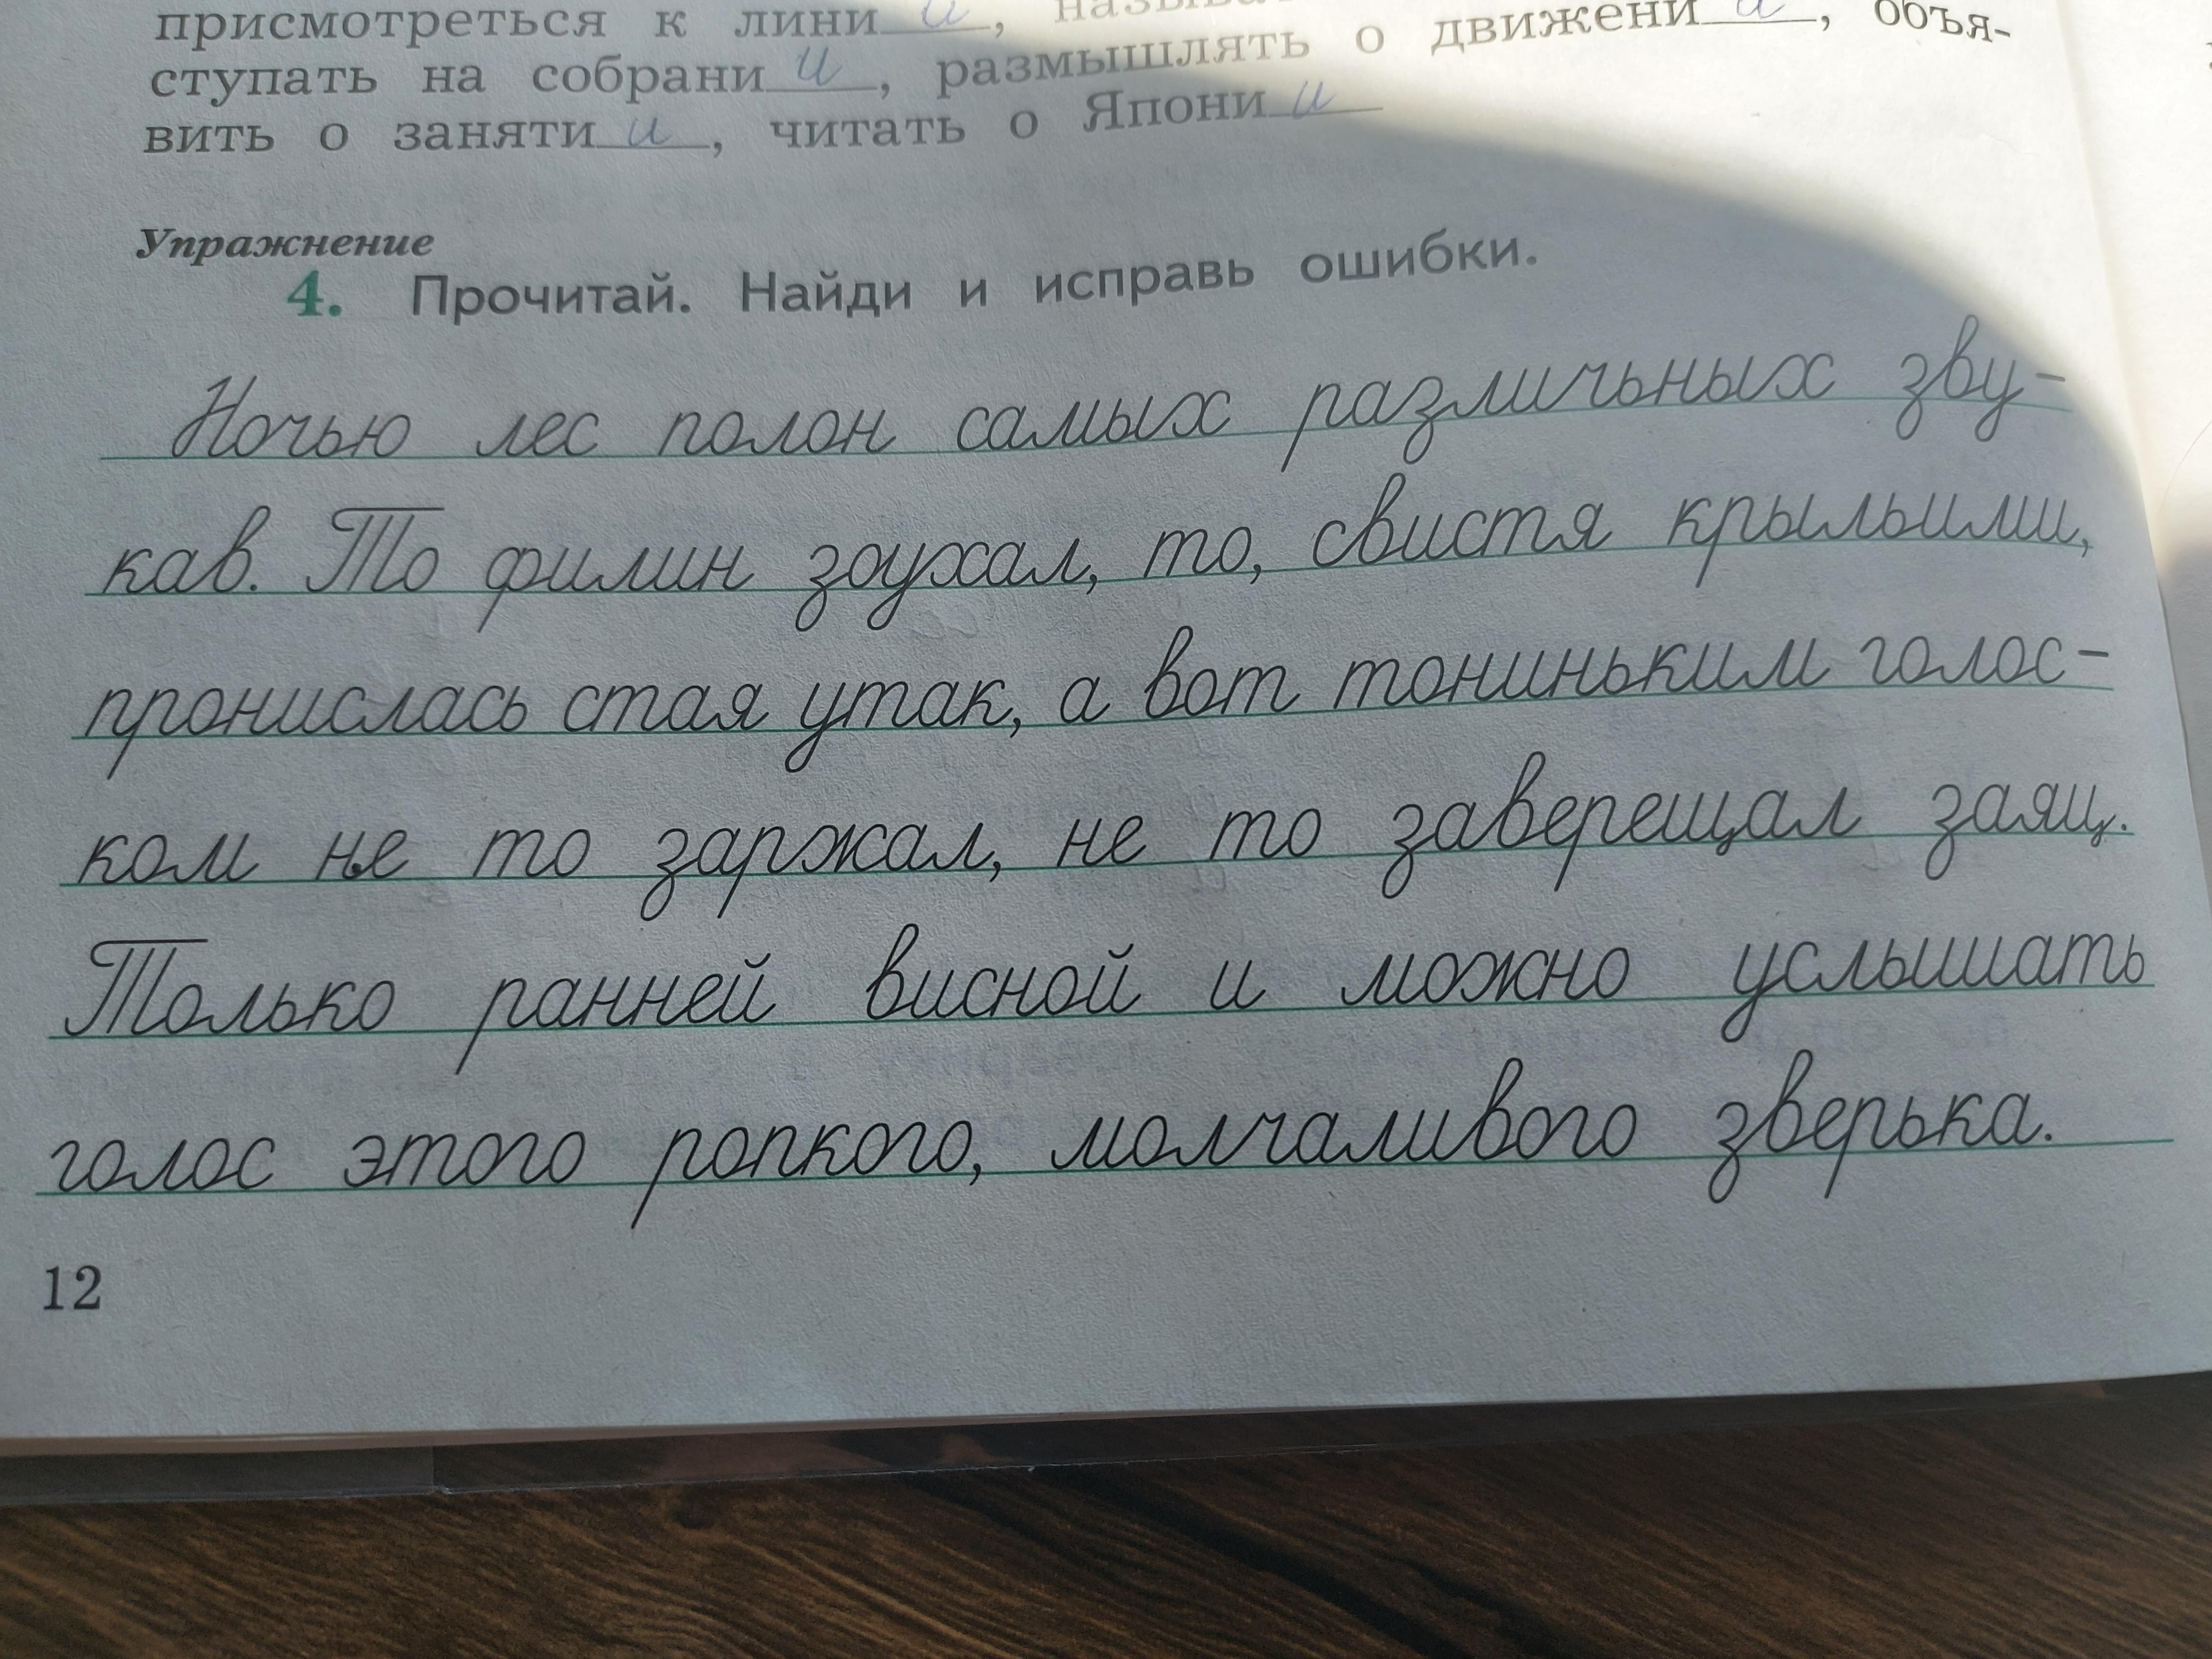 присмотреться к лини и,
ступать на собрани и, размышлять о движени и, объя-
вить о заняти и, читать о Япони и
Упражнение
4. Прочитай. Найди и исправь ошибки.
Ночью лес полон самых различьных зву-
кав. То филин зоухал, то, свистя крыльими,
пронислась стая утак, а вот тониньким голос-
ком не то заржал, не то заверещал заящ.
Только ранней висной и можно услышать
голос этого ропкого, молчаливого зверька.
12